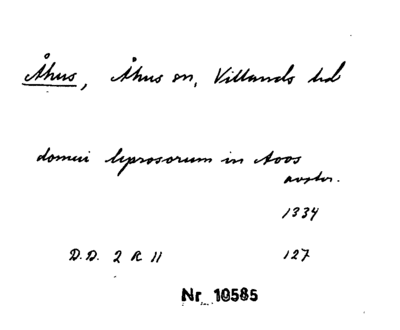 Åhus, Åhus sn, Villands hd
domui leprosorum in Aoos
avskr.
1334
D.D. 2 R 11 127
Nr 10585